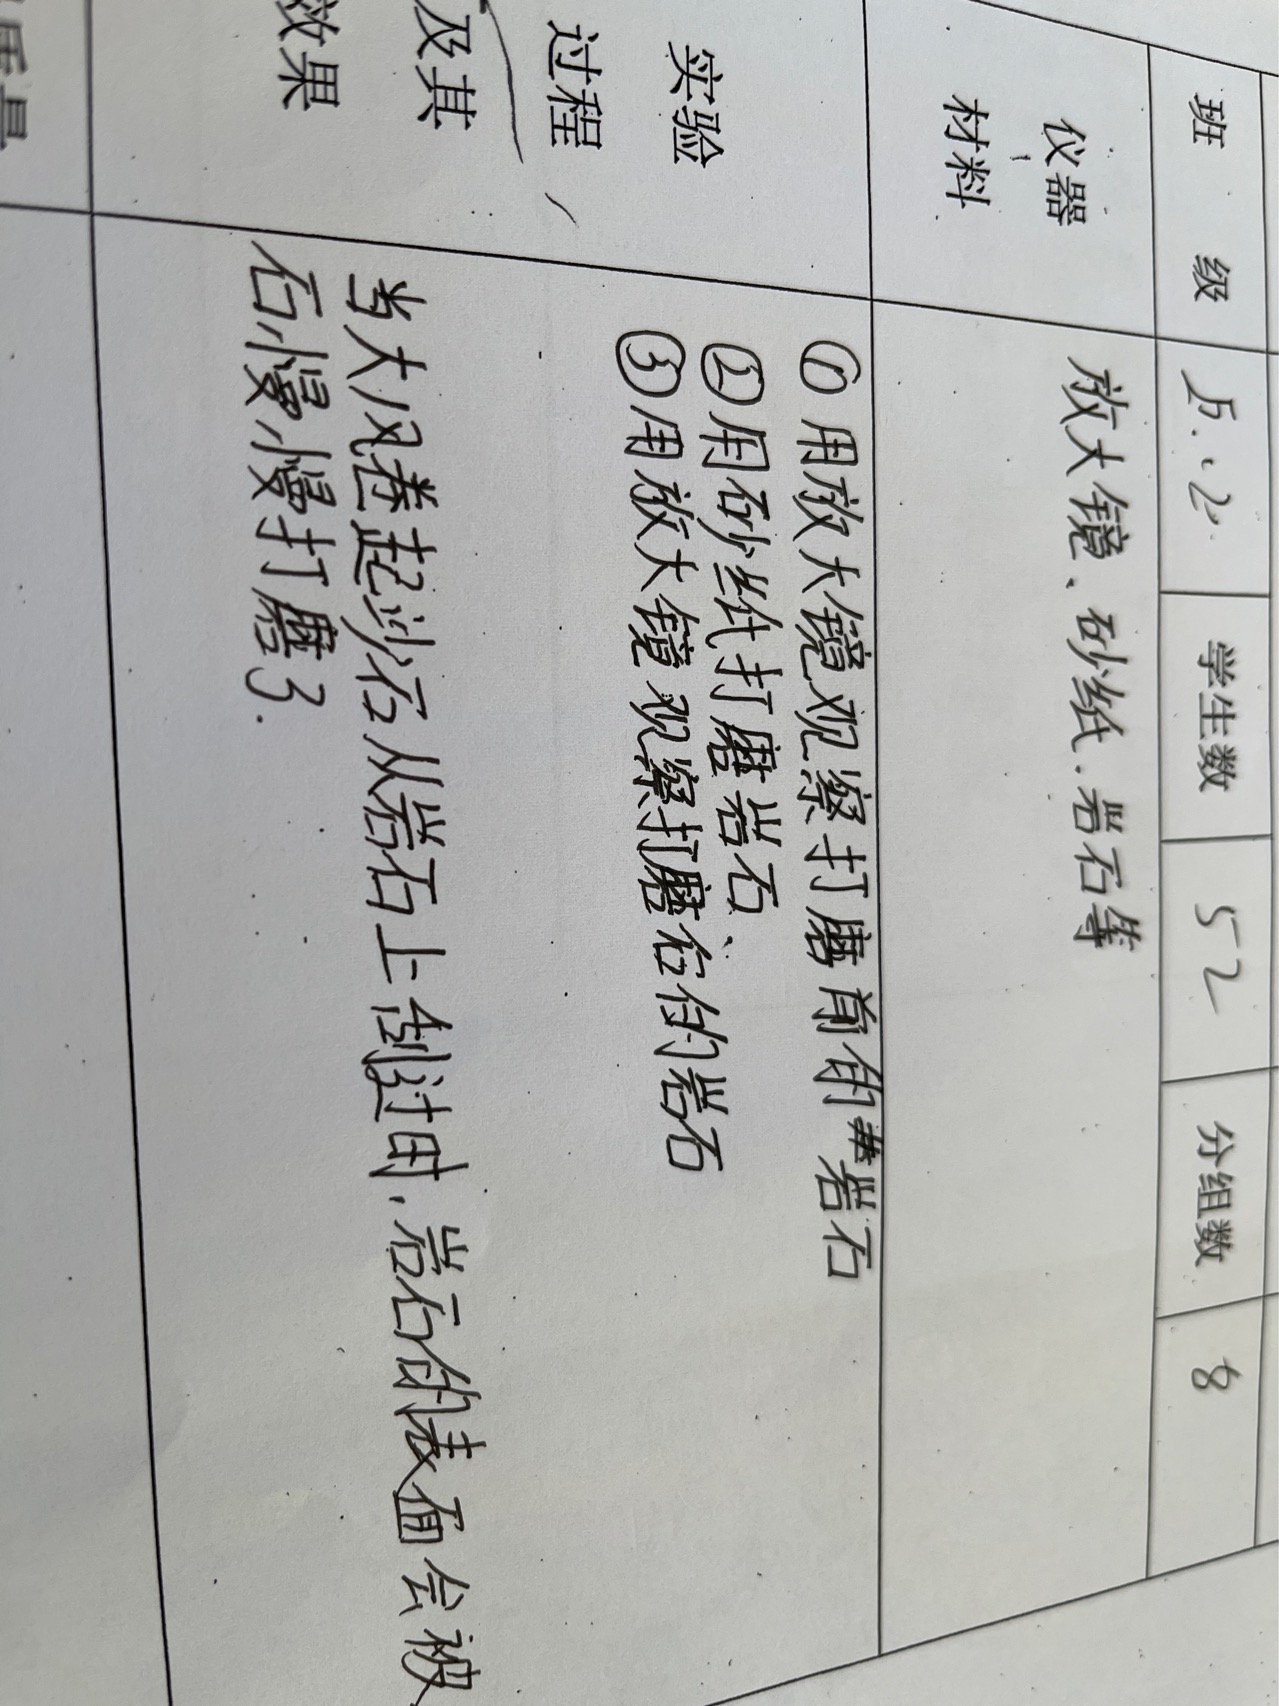 班 级 5.2 学生数 52 分组数 8
仪器
材料
放大镜、砂纸、岩石等
实验
过程
及其
效果
①用放大镜观察打磨前的岩石
②用砂纸打磨岩石、
③用放大镜观察打磨石的岩石
当大风卷起沙石从岩石上刮过时,岩石的表面会被
石慢慢打磨3.